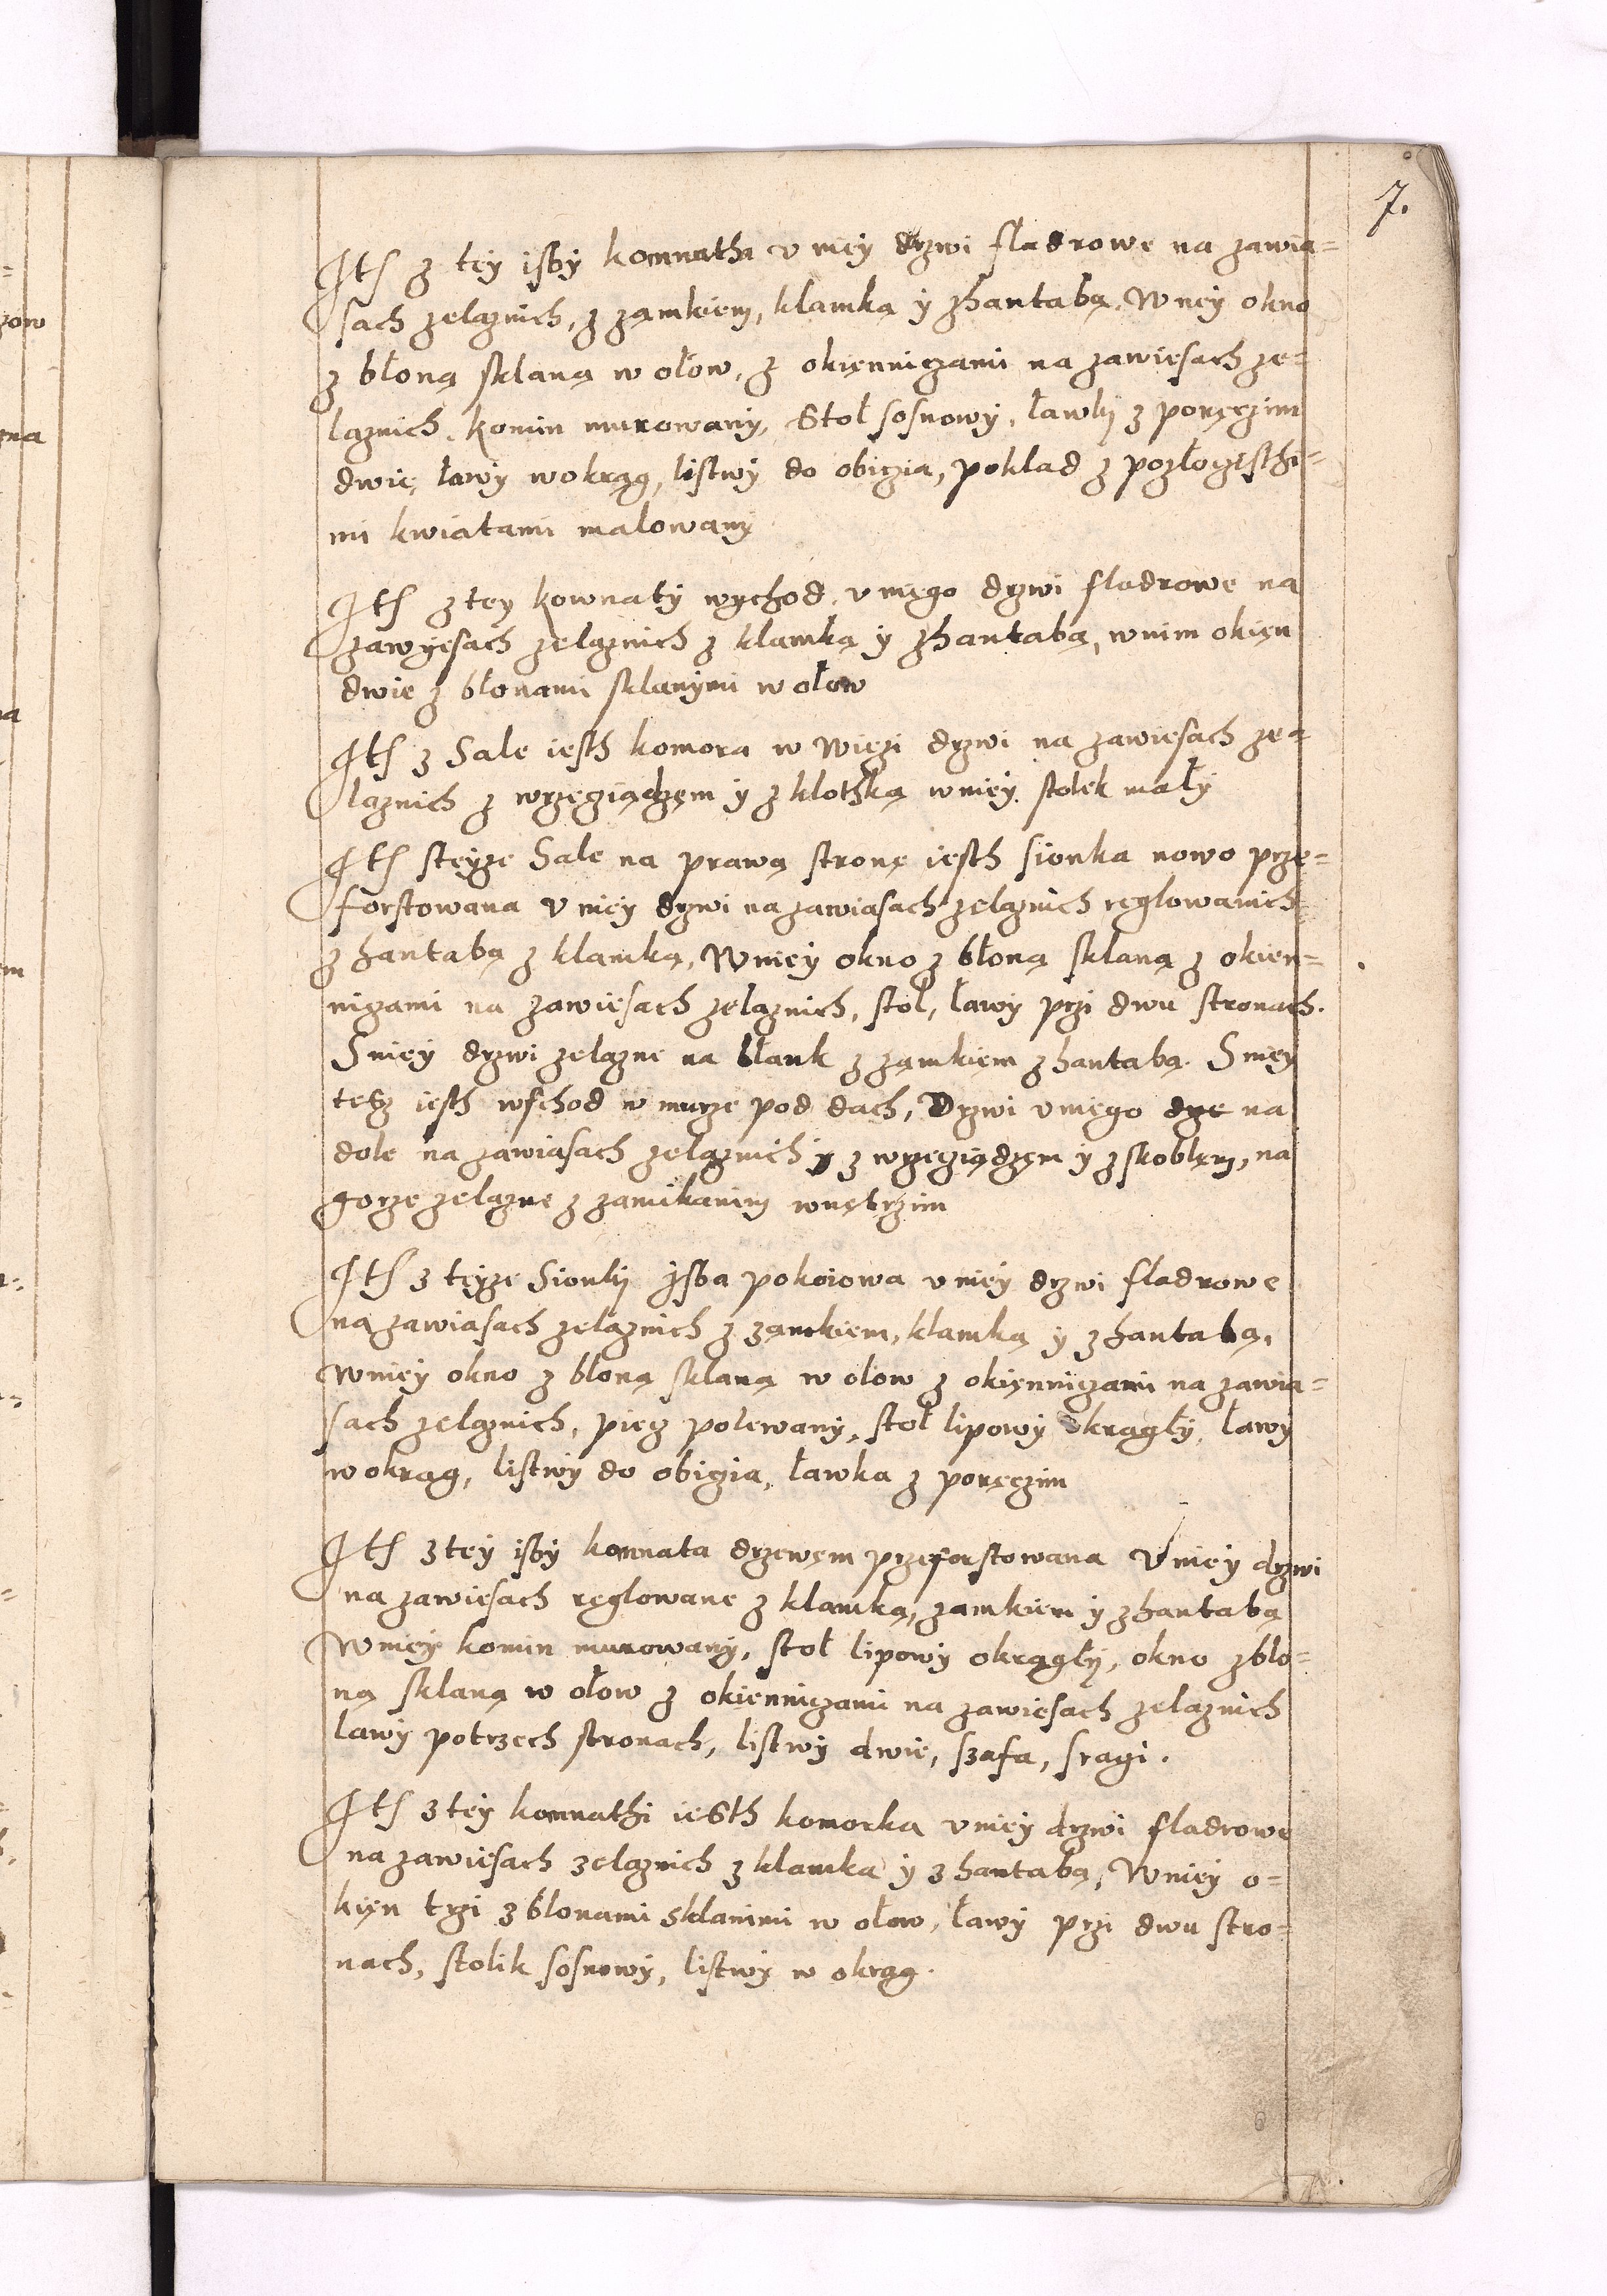 7.
Its z tey isby komnatha v niey drzwi fladrowe na zawia=
sach zelaznich, z zamkiem, klamką y z hantabą. W ney okno
z błoną sklaną w ołow, z okienniczami na zawiesach ze=
laznich. Komin murowany, Stoł sosnowy, ławky z poręczim
dwie, ławy wokrąg, listwy do obiczia, pokład z pozłoczisthi=
mi kwiatami malowany
Its z tey kownaty wychod, v niego drzwi fladrowe na
zawyesach zelaznich z klamką y z hantabą, w nim okien
dwie z błonami sklanymi w ołow
Its z Sale iesth komora w Wiezi drzwi na zawiesach ze=
laznich z wrzegiądzem y z klothką w niey stolek mały
Its steyze Sale na prawą stronę iesth sionka nowo prze=
forstowana v niey drzwi na zawiasach zelaznich reglowanich
z hantabą z klamką, W niey okno z błoną sklaną z okien=
nizami na zawiesach zelaznich, stoł, ławy przi dwu stronach.
S niey drzwi zelazne na blank z zamkiem z hantabą. S niey
tesz iesth wschod w murze pod dach, Drzwi v niego dze na
dole na zawiasach zelaznich y z wrzegiądzem y z skoblem, na
gorze zelazne z zamikanim wnętrznim
Its z teyze Sionky Jsba pokoiowa v niey drzwi fladrowe
na zawiasach zelaznich z zamkiem, klamką y z hantabą,
w niey okno z bloną sklaną w ołow z okienniczami na zawia=
sach zelaznich, piecz polewany, stoł lipowy okrągły, ławy
w okrąg, listwy do obiczia, ławka z poręczim
Its z tey isby komnata drzewem przeforstowana V niey drzwi
na zawiesach reglowane z klamką, zamkiem y z hantabą
W niey komin murowany, stoł lipowy okrągły, okno z bło=
ną sklaną w ołow z okienniczami na zawiesach zelaznich
lawy potrzech stronach, listwy dwie, szafa, sragi.
Its z tey komnathi iesth komorka v niey drzwi fladrowe
na zawiesach zelaznich z klamka y z hantabą, W niey o=
kien trzi z blonami sklanimi w ołow, ławy przi dwu stro=
nach, stolik sosnowy, listwy w okrąg.